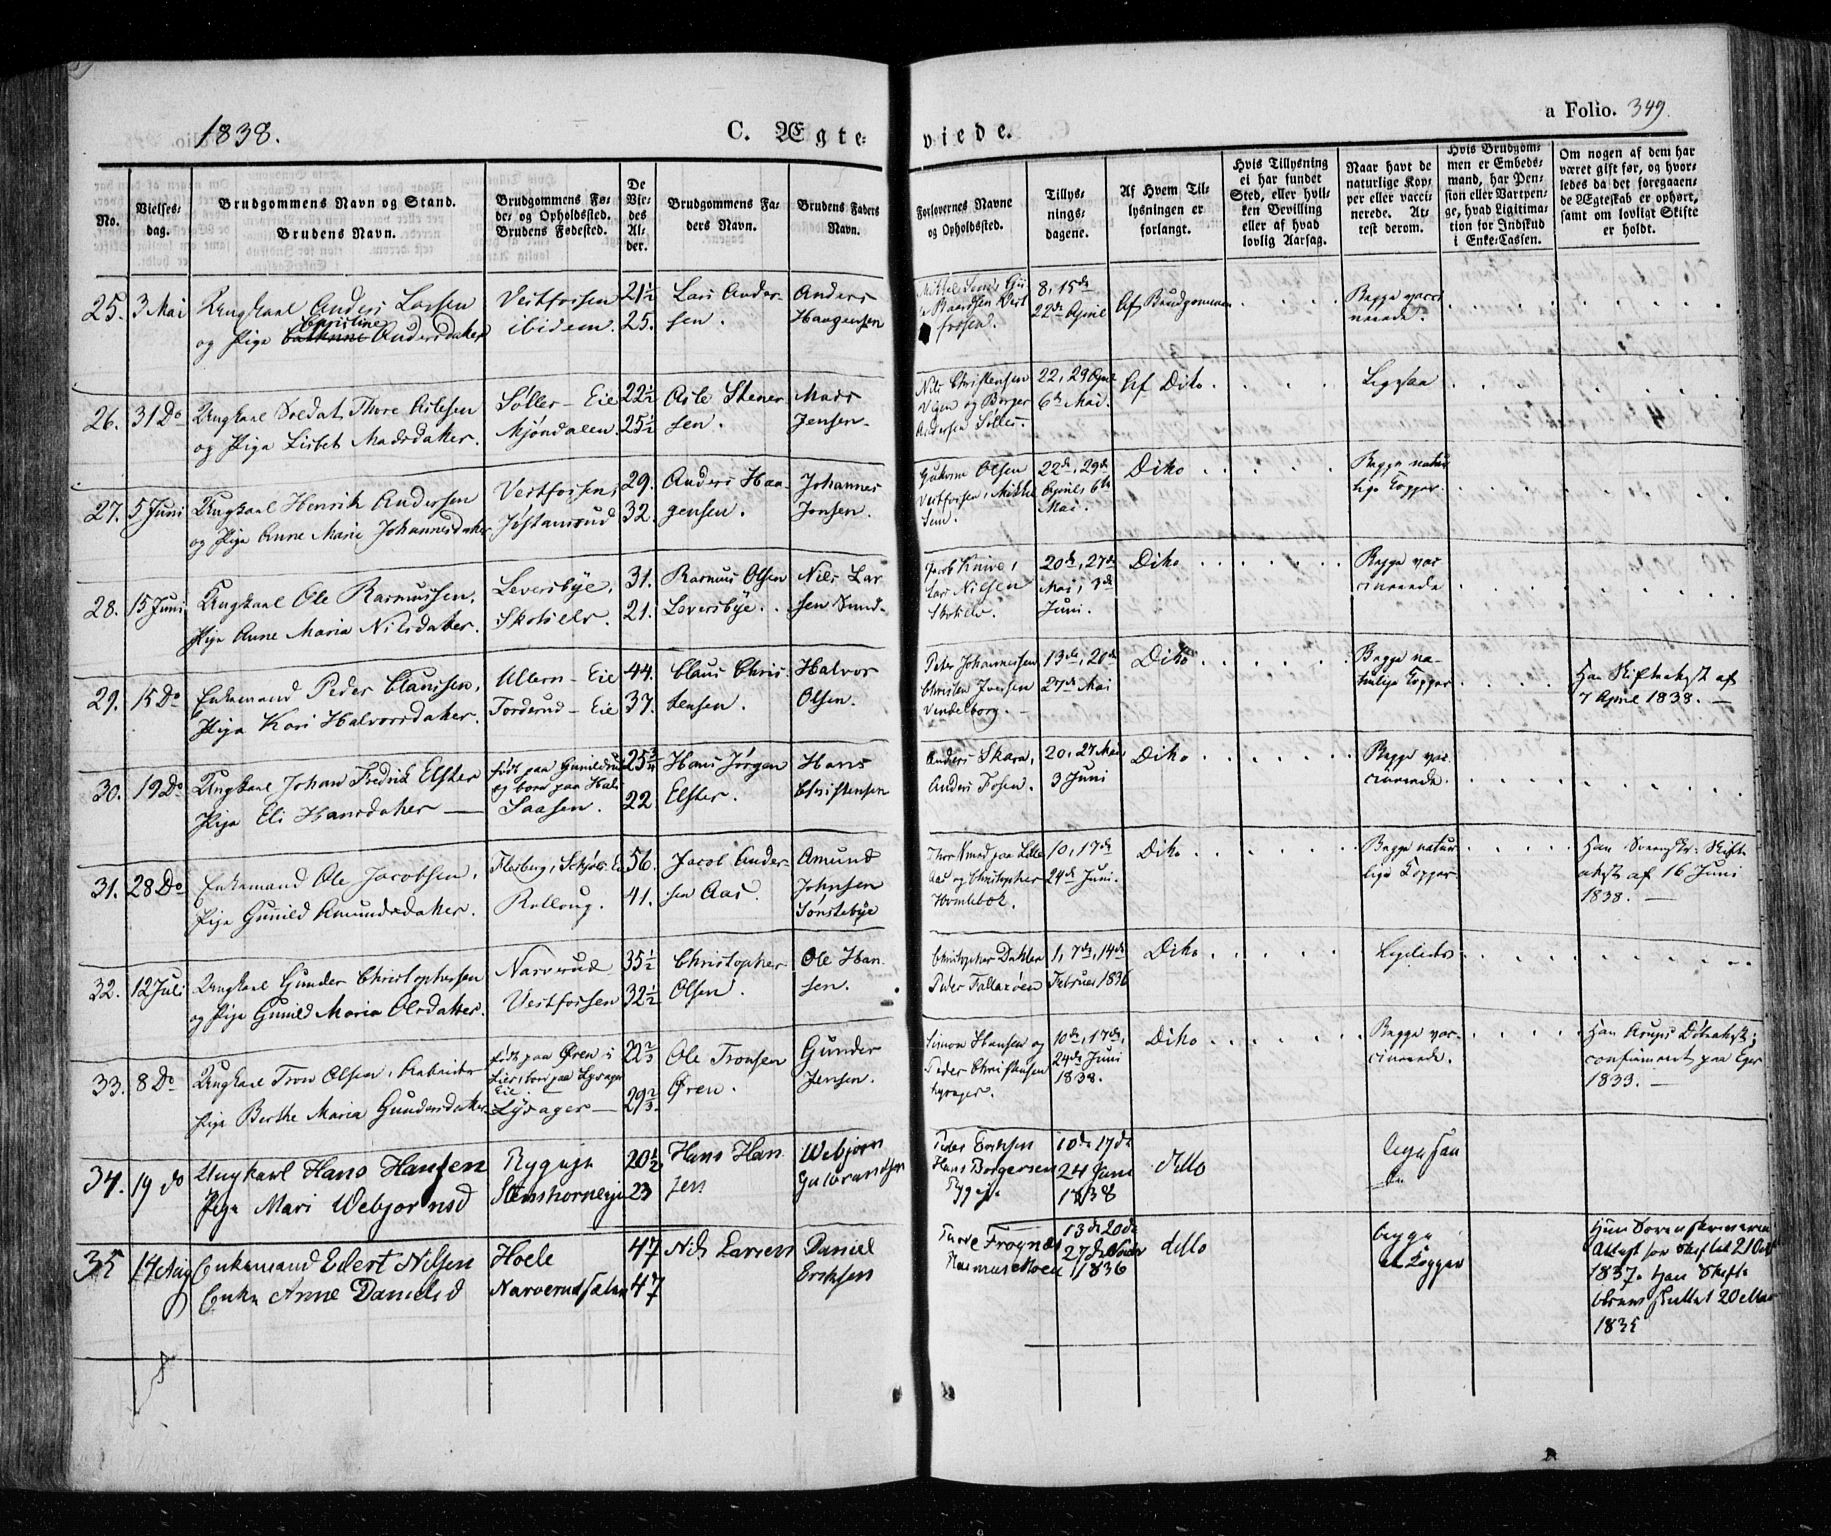 1838.
C. Ægte-
viede.
a Folio. 349.
No.
Vielses-
dag.
Brudgommens Navn og Stand.
Brudens Navn.
Brudgommens Fø-
de- og Opholdssted.
Brudens Fødested.
De
Vie-
des
Al-
der.
Brudgommens Fa-
ders Navn.
Brudens Faders
Navn.
Forlovernes Navne
og Opholdssted.
Tillys-
nings-
dagene.
Af Hvem Til-
lysningen er
forlangt.
Hvis Tillysning
ei har fundet
Sted, eller hvil-
ken Bevilling
eller af hvad
lovlig Aarsag.
Naar havt de
naturlige Kop-
per eller vacci-
nerede. At-
test derom.
Hvis Brudgom-
men er Embeds-
mand, har Pen-
sion eller Vartpen-
ge, hvad Ligitima-
tion for Indskud
i Enke-Cassen.
Om nogen af dem har
været gift før, og hvor-
ledes da det foregaaen-
de Ægteskab er ophørt,
samt om lovligt Skifte
er holdt.
25. 3 Mai Ungkarl Anders Larsen Vestfossen 21½ Lars Ander- Anders
Christine
og Pige Andersdatter ibidem. 25. sen. Haagensen
8, 15de
22de April Af Brudgommen
Begge vacci-
nerede.
26. 31 Do Ungkarl Soldat Thore Aslesen Søller-Eie 22½ Asle Stener- Mads
og Pige Lisbet Madsdatter. Mjøndalen. 25½ sen. Jensen.
Nils Christensen 22, 29 April Af Dito. Ligesaa
og Borger 6te Mai.
Andersen Søller.
27. 5 Juni Ungkarl Henrik Andersen Vestfossen, 29. Anders Haa- Johannes
og Pige Anne Marie Johannesdatter 32. gensen. Jonsen.
Olsen 22de, 29de Dito Begge natur-
Vestfossen, April 6te lige Kopper.
Mai.
28. 15 Juni Ungkarl Ole Rasmussen. Leversbye, 31. Rasmus Olsen Niels Lar-
Pige Anne Maria Nilsdatter. Skotselv. 21. Leversbye. sen Sund-
Jacob 20de, 27de Dito Begge vac-
Lars Nilsen Mai, 3de cinerede
Skotselv. Juni.
29. 15 Do Enkemand Peder Clausen, Ullern-Eie 44. Claus Chris- Halvor
Pige Kari Halvorsdatter. Torderud-Eie 37. tensen. Olsen.
Peter Johannessen 13de, 20de Dito Begge na- Han Skifteattest af
Christen Iversen 27de Mai turlige Kopper 7 April 1838.
Vendelborg.
30. 19 Do Ungkarl Johan Fredrik Elster født paa 25¾ Hans Jørgen Hans
Pige Eli Hansdatter Saasen. 22 Elster. Christensen
Anders Skara, 20, 27 Mai Dito Begge vac-
Anders Fosen. 3 Juni cinerede.
31. 28 Do Enkemand Ole Jacobsen, Flesberg, 56. Jacob Ander- Amund
Pige Gunild Amundsdatter. Kolloug. 41. sen Aas. Johnsen
Sønstebye
paa Lille 10, 17de Dito Begge natur- Han Skifte-
Aas og Christopher 24de Juni. lige Kopper attest af 16 Juni
Homlebek. 1838.
32. 12 Juli Ungkarl Gunder Christophersen Narverud 35½ Christopher Ole Han-
og Pige Gunild Maria Olsdatter. Vestfossen 32½ Olsen. sen.
Christopher 1, 7de, 14de Dito Ligeledes
Peder Februar 1836
33. 8 Do Ungkarl Tron Olsen, Arbeider født paa Øren i 22⅔ Ole Tronsen Gunder
Pige Berthe Maria Gundersdatter Lysager 29⅔ Øren. Jensen.
Simon Hansen og 10de, 17de, Dito Begge vac-
Peder Christensen 24de Juni cinerede. confirmeret paa Eger
Lysager. 1838. 1833.
34. 19 do Ungkarl Hans Hansen 20½ Hans Han Webjørn
Pige Mari Webjørnsd 23 sen Gulbrandsen
Peder Eriksen 10de 17de
Hans Borgersen 24 Juni ditto
1838
35 14 Aug Enkemand Edert Nilsen Hoele 47 Nils Larsen Daniel
Enke Anne Danielsd 47 Eriksen
13de 20de
27de ditto Begge
Moen 1836 Kopper
Hun Sorenskriveren
Attest for Skiftet 21 Oct
1837. Han Skifte
20 Mai
1835